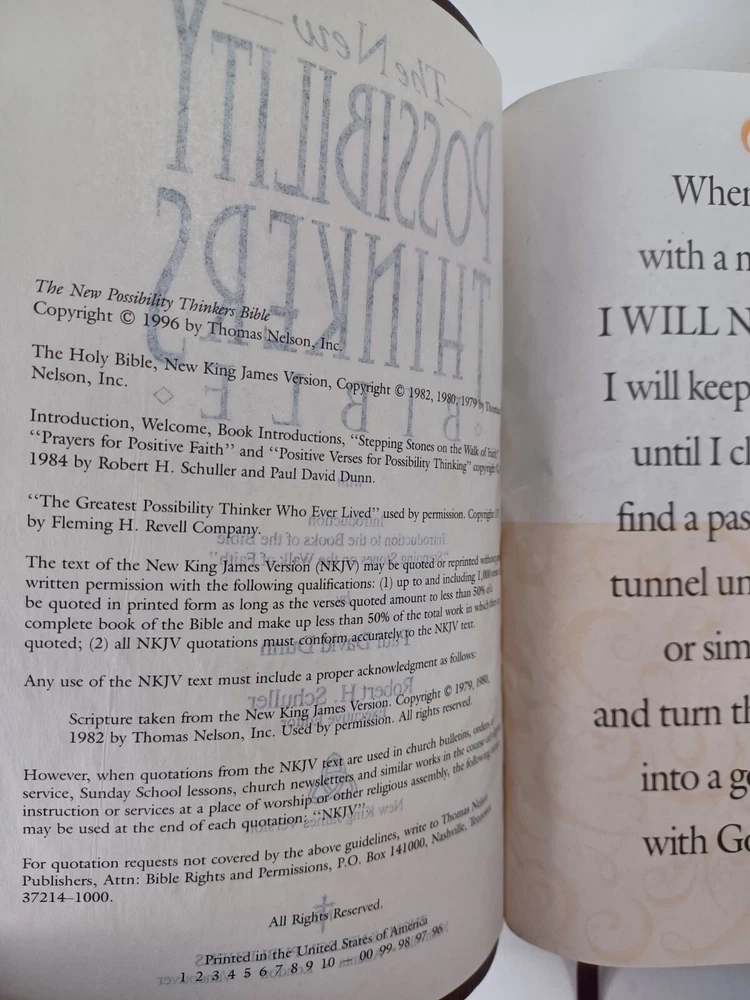 The New Possibility Thinkers Bible
Copyright © 1996 by Thomas Nelson, Inc.
The Holy Bible, New King James Version, Copyright © 1982, 1980, 1979 by Thomas
Nelson, Inc.
Introduction, Welcome, Book Introductions, “Stepping Stones on the Walk of Faith”
“Prayers for Positive Faith” and “Positive Verses for Possibility Thinking” copyright
1984 by Robert H. Schuller and Paul David Dunn.
“The Greatest Possibility Thinker Who Ever Lived” used by permission. Copyright
by Fleming H. Revell Company.
The text of the New King James Version (NKJV) may be quoted or reprinted without
written permission with the following qualifications: (1) up to and including 1,000
be quoted in printed form as long as the verses quoted amount to less than 50% of a
complete book of the Bible and make up less than 50% of the total work in which they
quoted; (2) all NKJV quotations must conform accurately to the NKJV text.
Any use of the NKJV text must include a proper acknowledgment as follows:
Scripture taken from the New King James Version. Copyright © 1979, 1980,
1982 by Thomas Nelson, Inc. Used by permission. All rights reserved.
However, when quotations from the NKJV text are used in church bulletins, orders of
service, Sunday School lessons, church newsletters and similar works in the course of
instruction or services at a place of worship or other religious assembly, the following
may be used at the end of each quotation: “NKJV”.
For quotation requests not covered by the above guidelines, write to Thomas Nelson
Publishers, Attn: Bible Rights and Permissions, P.O. Box 141000, Nashville, Tennessee
37214–1000.
All Rights Reserved.
Printed in the United States of America
1 2 3 4 5 6 7 8 9 10 — 00 99 98 97 96
The New
POSSIBILITY
THINKERS
BIBLE
with
Introduction
Introduction of the Books of the Bible
“Stepping Stones on the Walk of Faith”
by
Paul David Dunn
Robert H. Schuller
Executive Editor
New King James Version
When
with a m
I WILL N
I will keep
until I cl
find a pas
tunnel un
or sim
and turn th
into a go
with Go